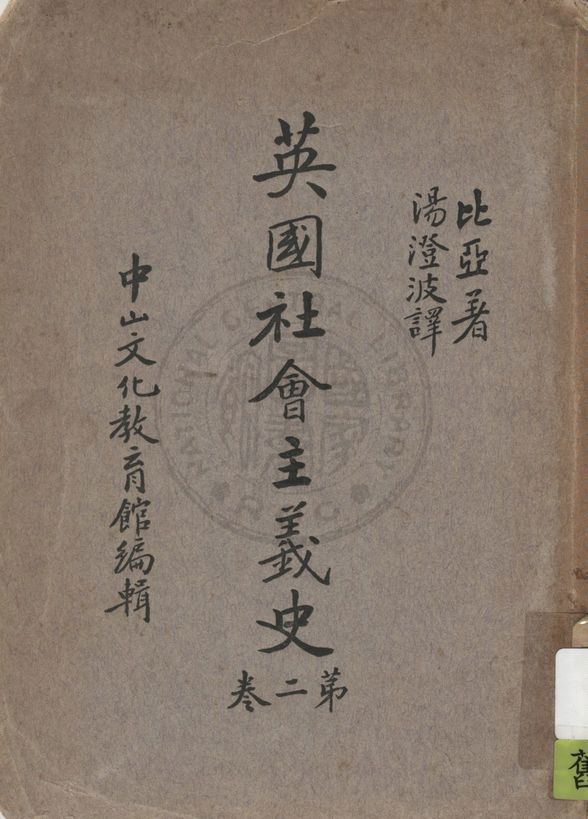 比亞著
湯澄波譯
英國社會主義史
第二卷
中山文化教育館編輯
NATIONAL CENTRAL LIBRARY
舊